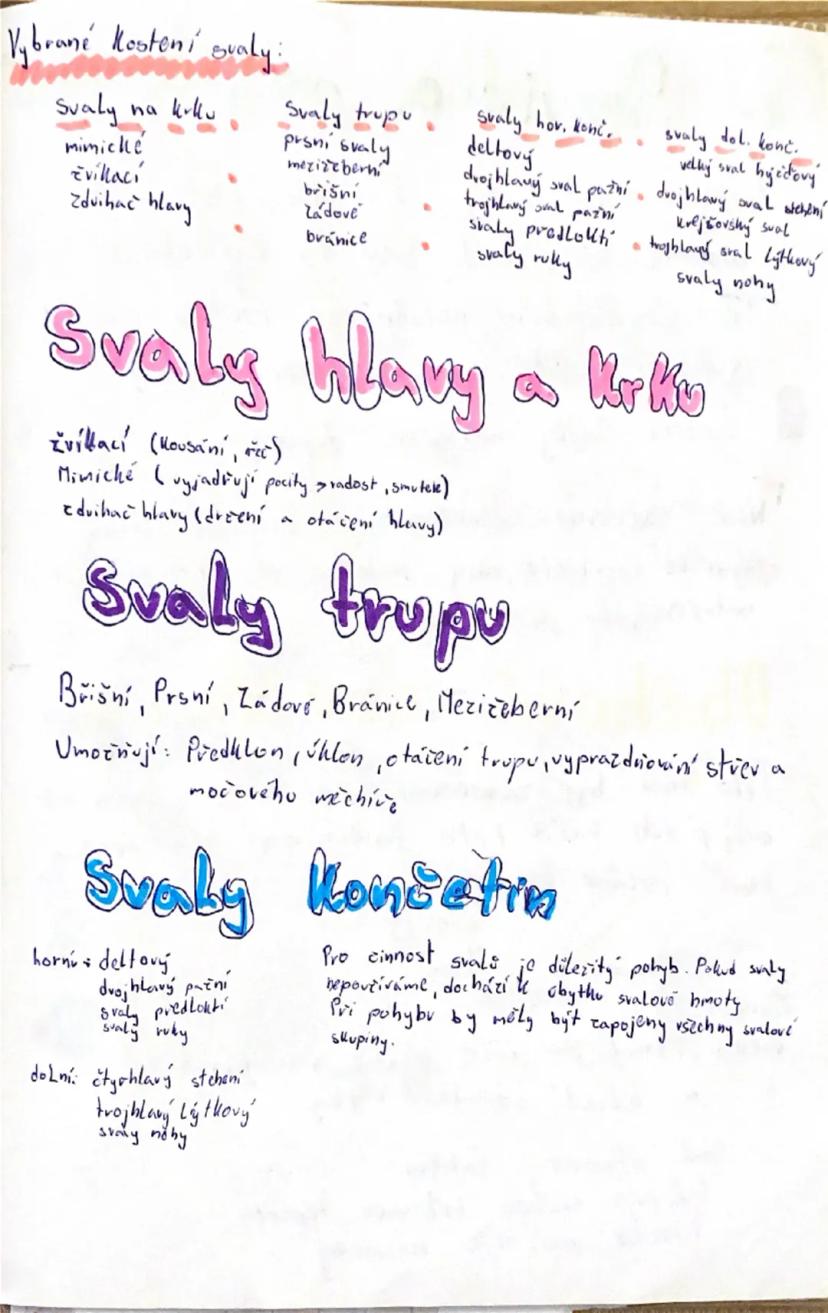 Vybrané kosterní svaly:
Svaly na krku
mimické
žvíkací
zdvihač hlavy
Svaly trupu
prsní svaly
mezižeberní
břišní
zádové
bránice
svaly hor. konč.
deltový
dvojhlavý sval pažní
trojhlavý sval pažní
svaly předloktí
svaly ruky
svaly dol. konč.
velký sval hýžďový
dvojhlavý sval stehení
krejšovský sval
trojhlavý sval lýtkový
svaly nohy
Svaly hlavy a krku
žvíkací (kousání, řeč)
Mimické (vyjadřují pocity > radost, smutek)
zdvihač hlavy (držení a otáčení hlavy)
Svaly trupu
Břišní, Prsní, Zádové, Bránice, Mezižeberní
Umožňují: Předklon, úklon, otáčení trupu, vyprazdňování střev a
močového měchíře
Svaly Končetin
horní: deltový
dvojhlavý pažní
svaly předloktí
svaly ruky
dolní: čtyrhlavý stehení
trojhlavý lýtkový
svaly nohy
Pro činnost svalů je důležitý pohyb. Pokud svaly
nepoužíváme, dochází k úbytku svalové hmoty
Při pohybu by měly být zapojeny všechny svalové
skupiny.